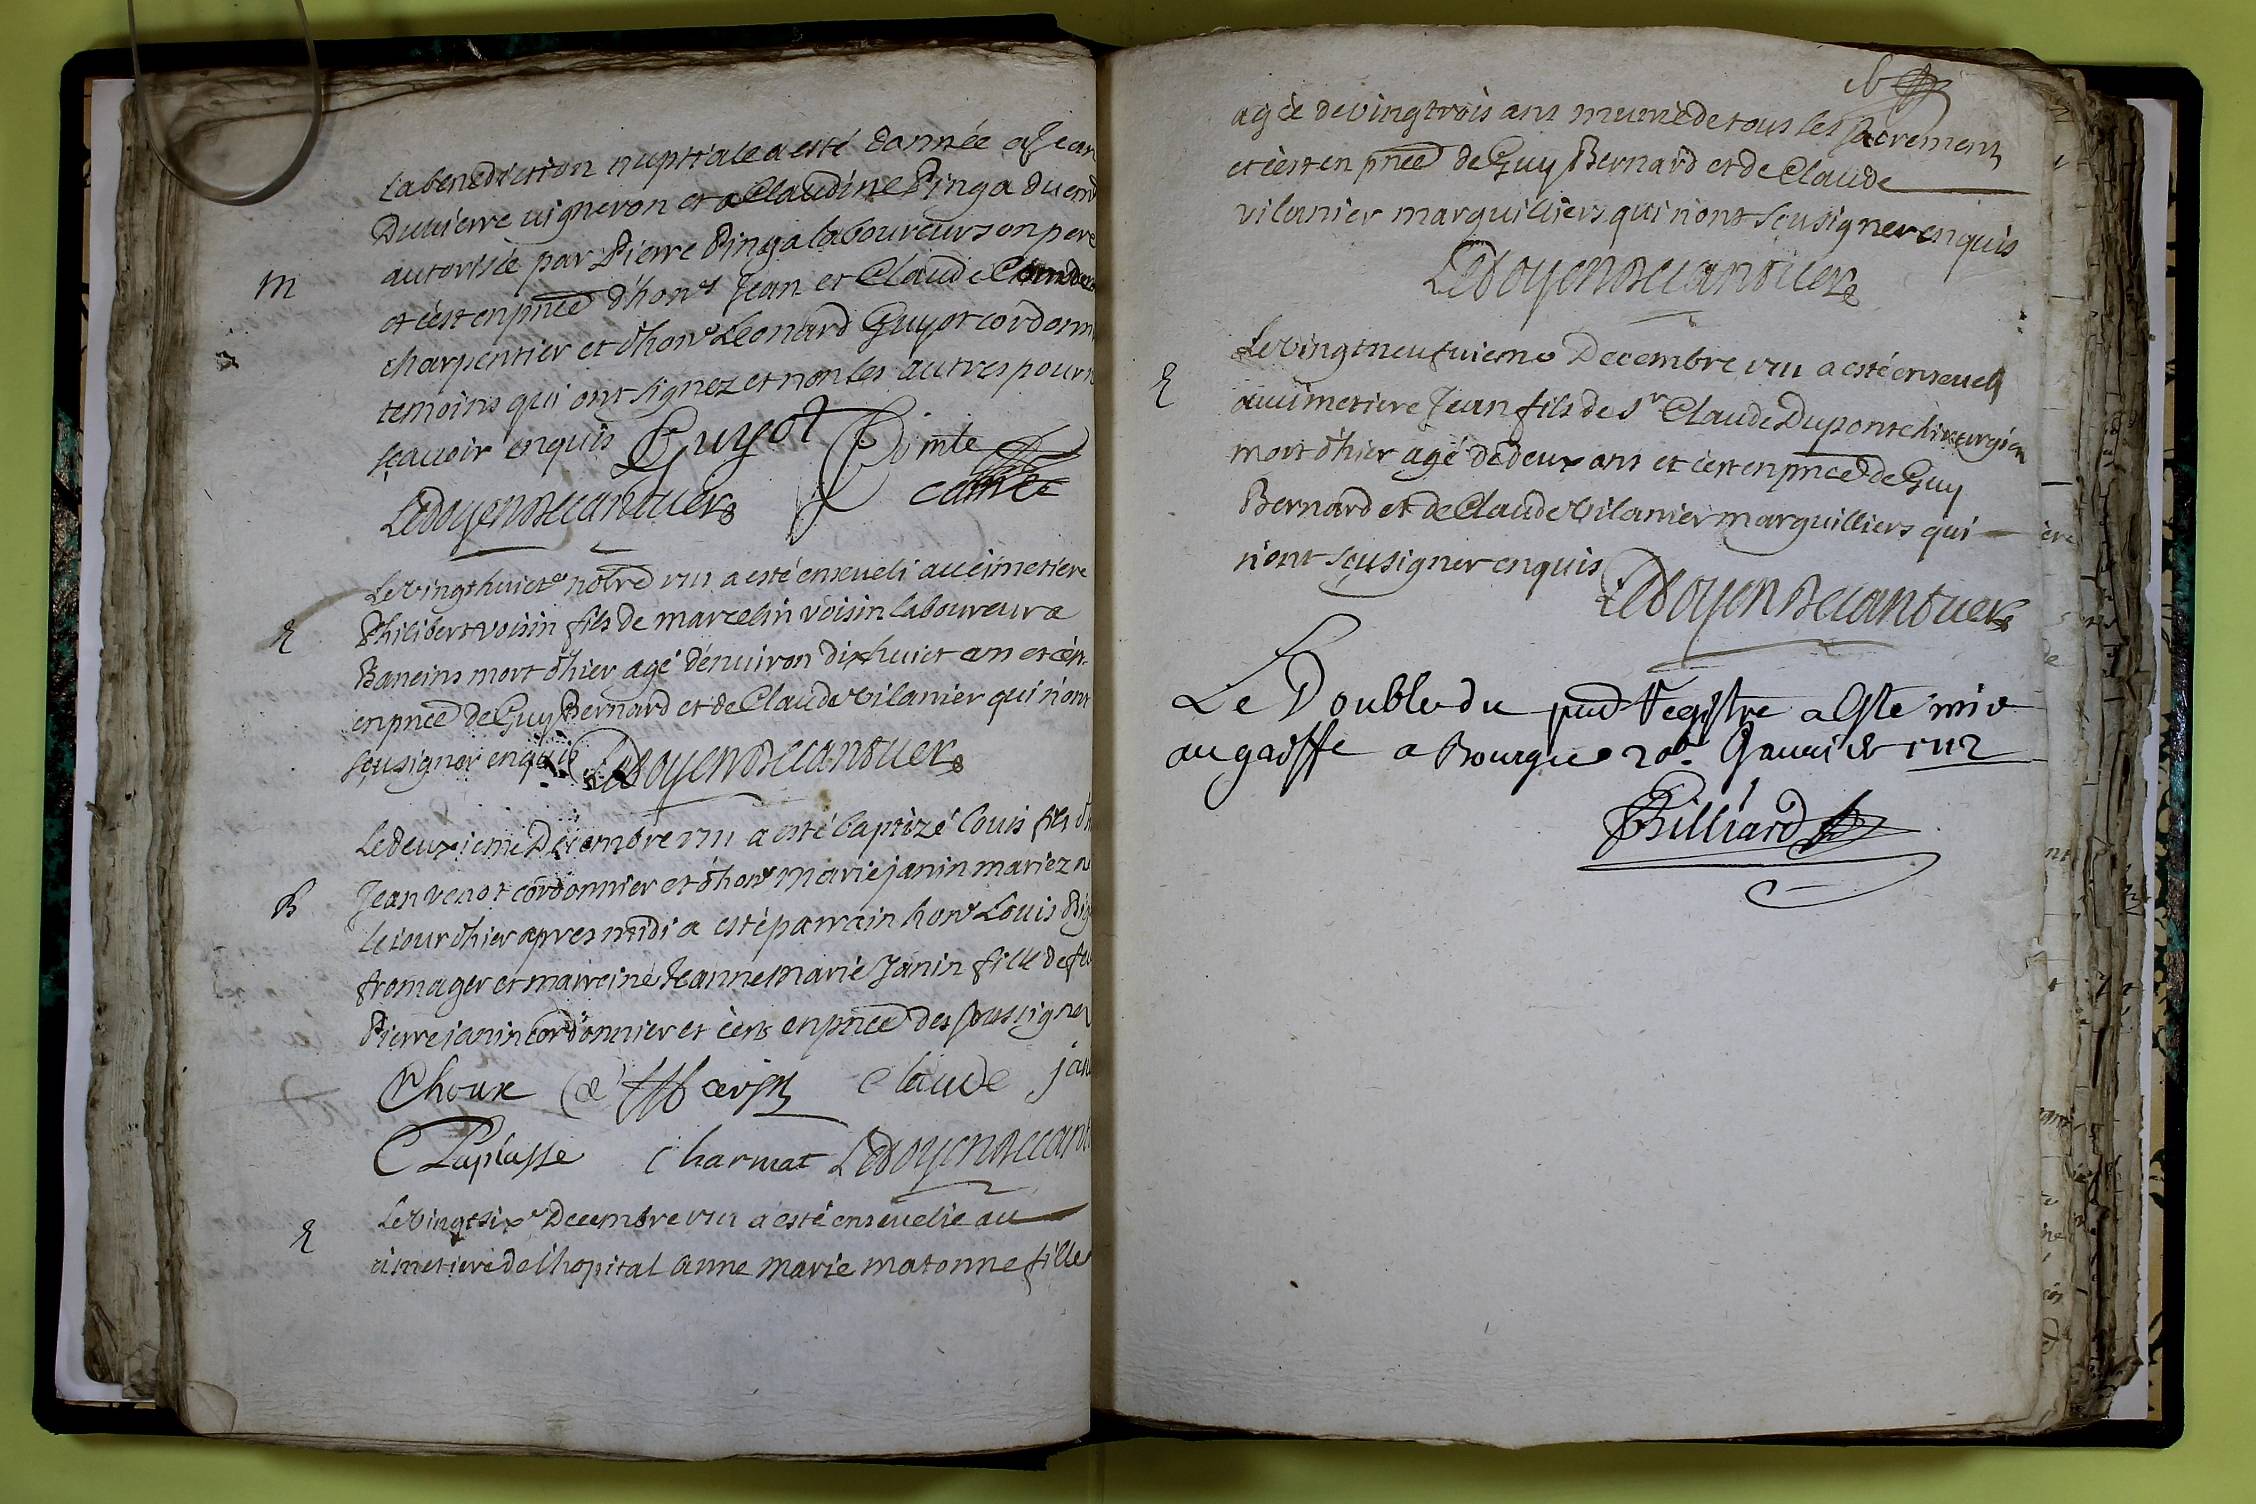 la benediction nuptiale a esté donnée a Jean
Duvierre vigneron et a Claudine Pinga duem
autorisée par Pierre Pinga laboureur son pere
M
et c'est en pnce d'hon. Jean et Claude
charpentier et d'hon. Leonard Guyot cordonn
temoins qui ont signez et non les autres pour n
sçavoir enquis Guyot Pointe
Ledoyen Decandvers
Le vingt huict novbre 1711 a esté enseveli au cimetiere
E
Philibert voisin fils de marcelin voisin laboureur a
Baneins mort d'hier agé d'environ dix huict an et c'est
en pnce de Guy Bernard et de Claude vilanier qui n'ont
sçu signer enquis Ledoyen Decandvers
Le deuxieme Decembre 1711 a esté baptizé Louis fils d'h
B
Jean venot cordonnier et d'hon. marie janin mariez n
le jour d'hier apres midi a esté parrain hon. Louis
fromager et marreine Jeanne marie Janin fille de feu
Pierre janin cordonnier et c'est en pnce des soussignez
Choux Claude jan
Laplasse Charmat Ledoyen Decand
Le vingt six. Decembre 1711 a esté ensevelie au
E
cimetiere de l'hopital anne marie matonne fille
agée de vingt trois ans munie de tous les sacremens
et c'est en pnce de Guy Bernard et de Claude
vilanier marguilliers qui n'ont sçu signer enquis
Ledoyen Decandvers
Le vingt neufvieme Decembre 1711 a esté enseveli
E
au cimetiere Jean fils de Sr Claude Dupont chirurgien
mort d'hier agé de deux ans et c'est en pnce de Guy
Bernard et de Claude vilanier marguilliers qui
n'ont sçu signer enquis
Ledoyen Decandvers
Le Double du pnt Registre a Esté mis
au greffe a Bourg ce 20e Janvier 1712
Billiard